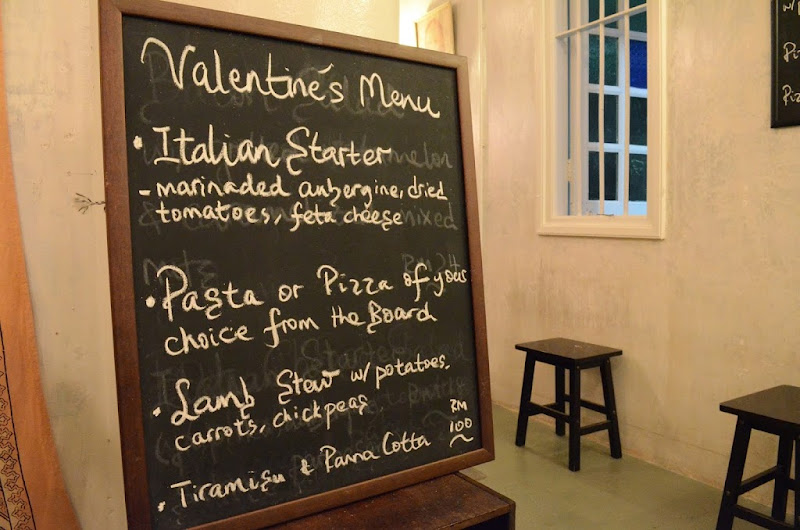 Valentine's Menu
• Italian Starter
- marinaded aubergine, dried
tomatoes, feta cheese
• Pasta or Pizza of your
choice from the Board
• Lamb Stew w/ potatoes,
carrots, chickpeas
RM
100
• Tiramisu & Panna Cotta
w/
Pizz
Pizz